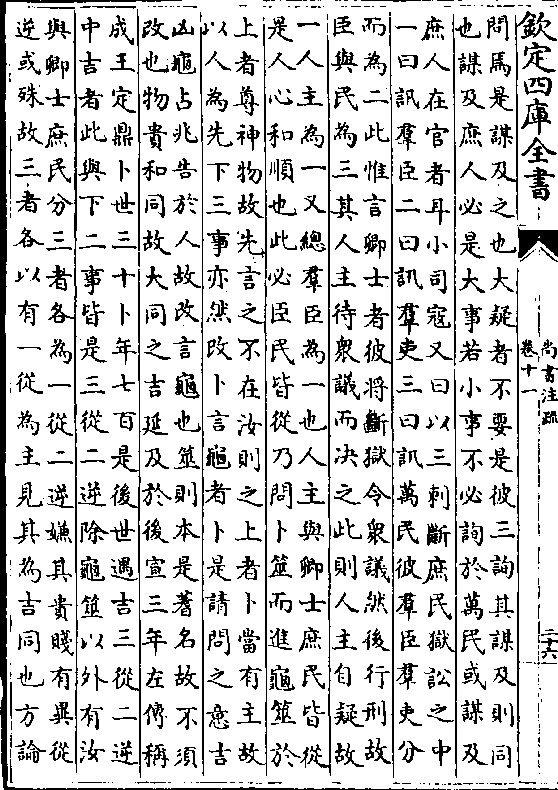 欽定四庫全書
尚書注疏
卷十一
二十六
問焉是謀及之也大疑者不要是彼三詢其謀及則同
也謀及庶人必是大事若小事不必詢於萬民或謀及
庶人在官者耳小司寇又曰以三刺斷庶民獄訟之中
一曰訊羣臣二曰訊羣吏三曰訊萬民彼羣臣羣吏分
而為二此惟言卿士者彼將斷獄令衆議然後行刑故
臣與民為三其人主待衆議而決之此則人主自疑故
一人主為一又總羣臣為一也人主與卿士庶民皆從
是人心和順也此必臣民皆從乃問卜筮而進龜筮於
上者尊神物故先言之不在汝則之上者卜當有主故
以人為先下三事亦然改卜言龜者卜是請問之意吉
凶龜占兆告於人故改言龜也筮則本是蓍名故不須
改也物貴和同故大同之吉延及於後宣三年左傳稱
成王定鼎卜世三十卜年七百是後世遇吉三從二逆
中吉者此與下二事皆是三從二逆除龜筮以外有汝
與卿士庶民分三者各為一從二逆嫌其貴賤有異從
逆或殊故三者各以有一從為主見其為吉同也方論